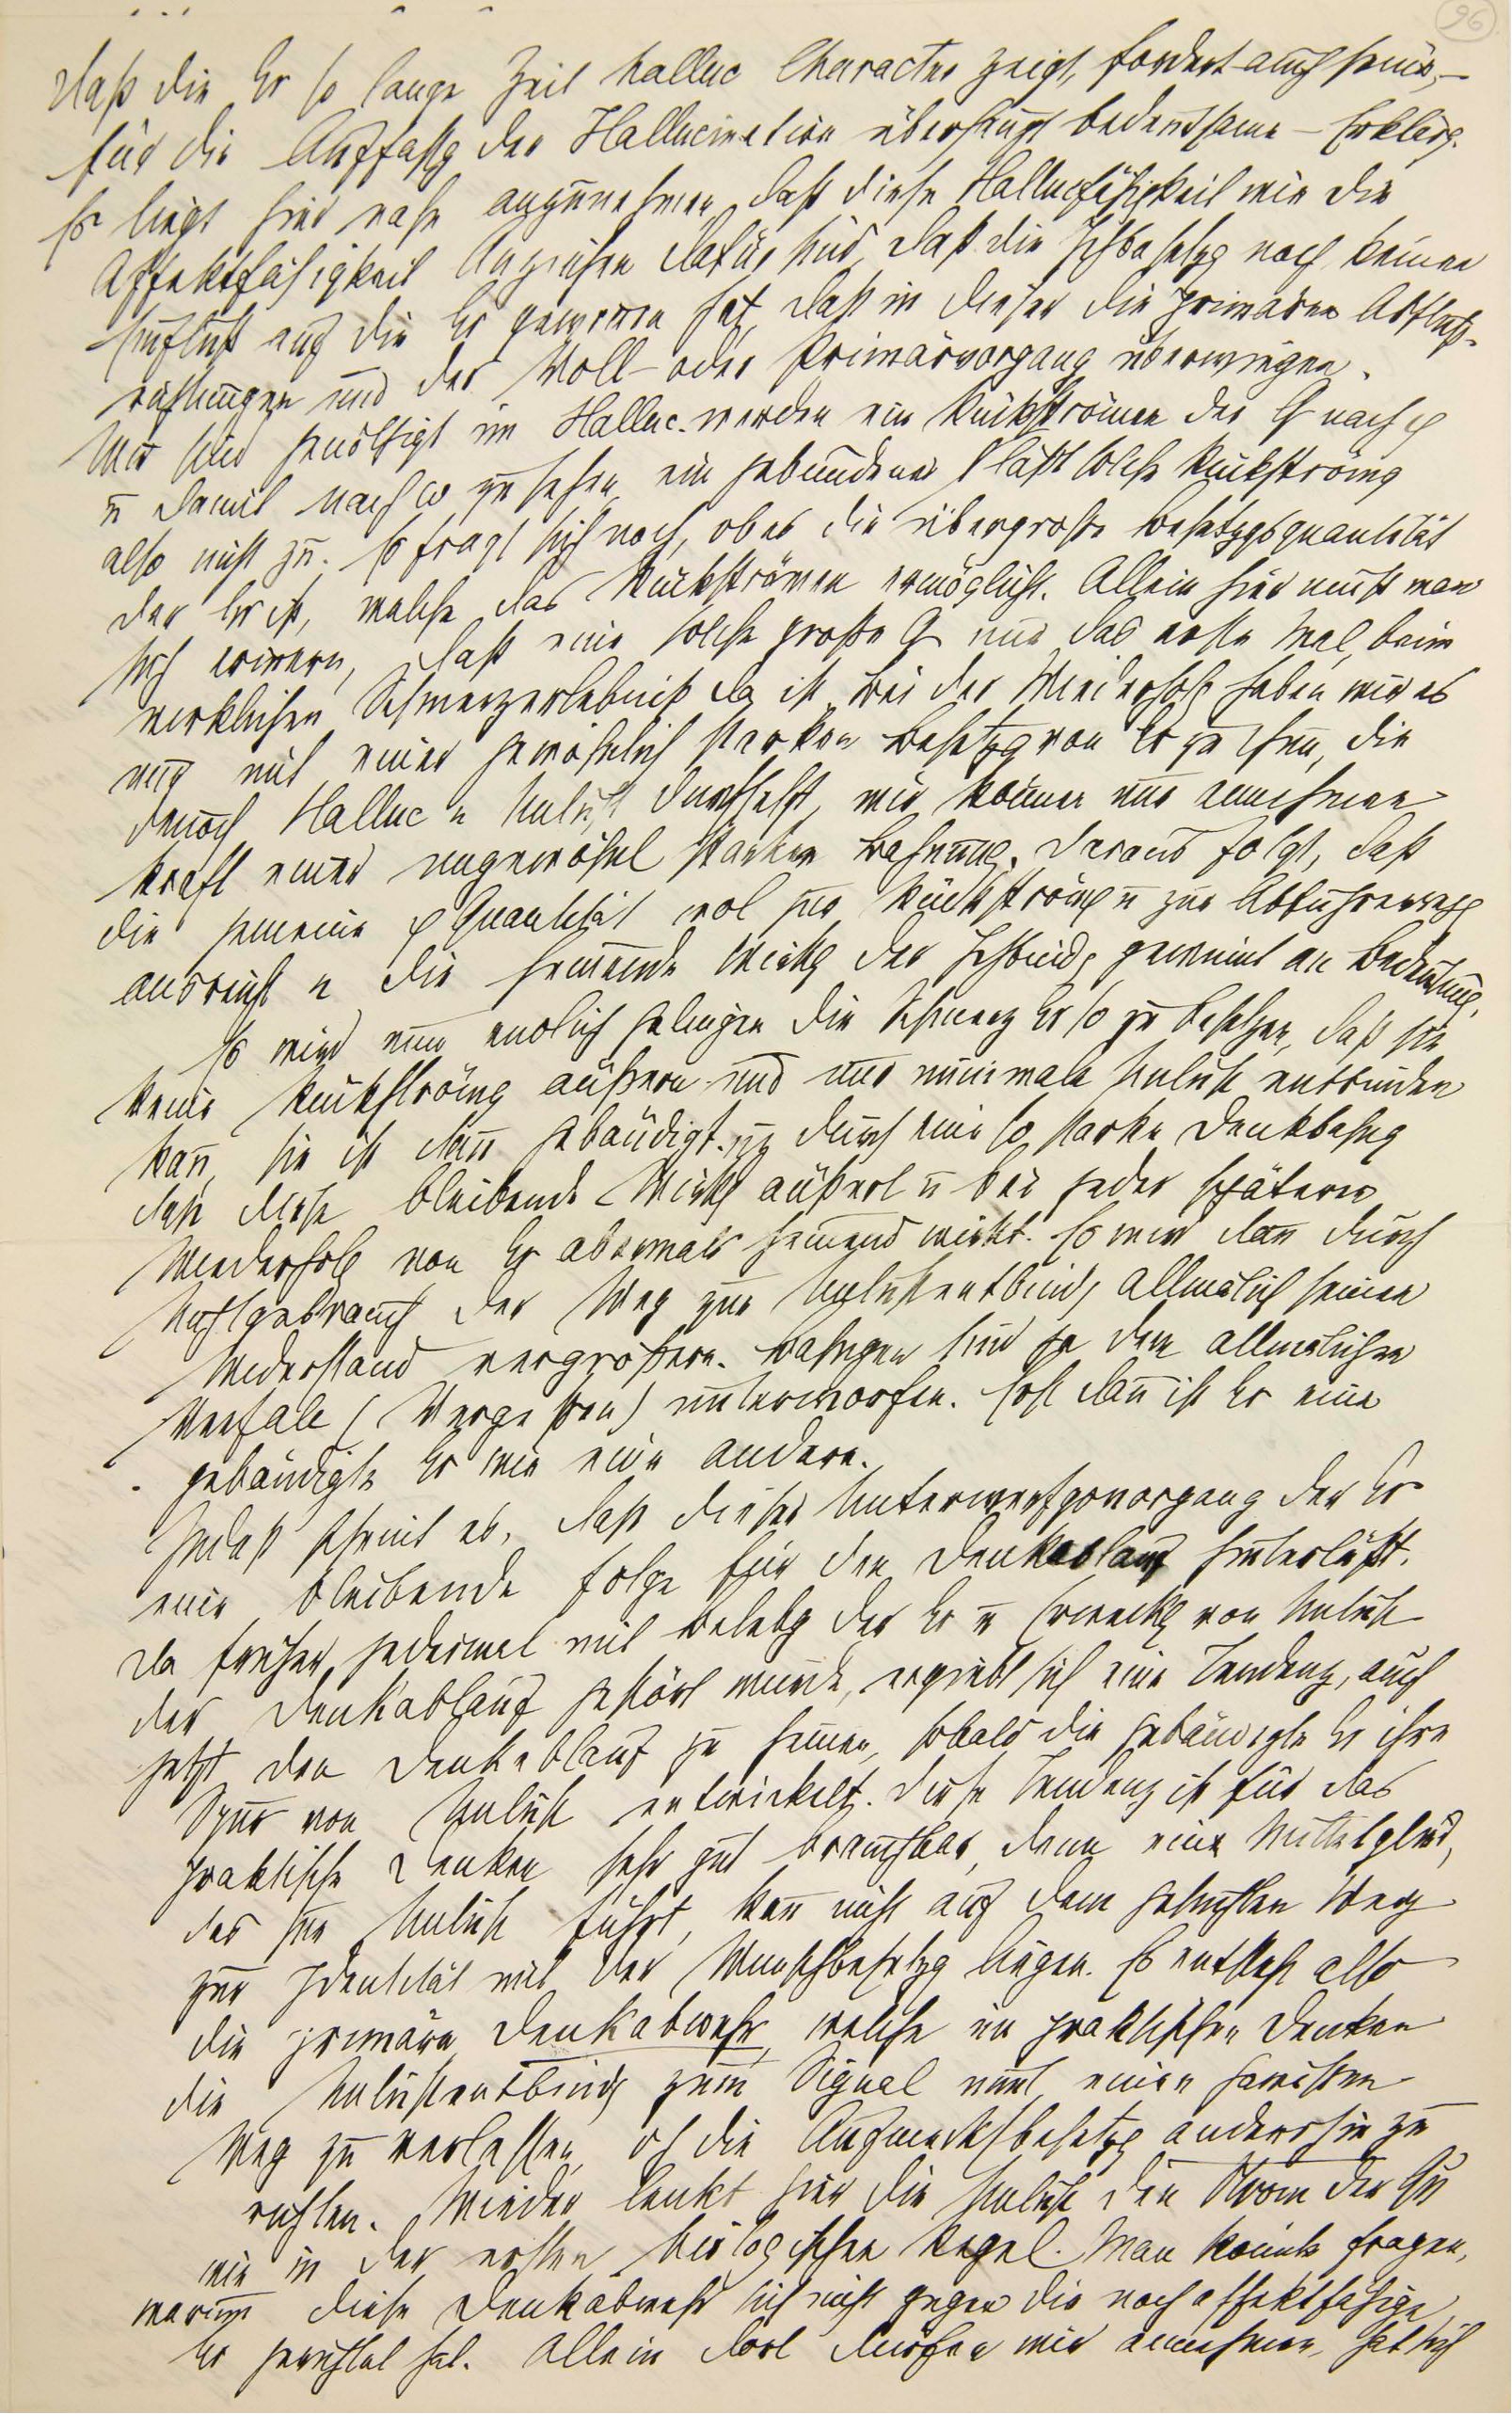 96
Daß die Er so lange Zeit halluc Character zeigt, fordert auch seine, –
für die Auffassg der Hallucination überhaupt bedeutsame – Erklärg.
Es liegt hier nahe anzunehmen, daß diese Hallucfähigkeit wie die
Affektfähigkeit Anzeichen dafür sind, daß die Ichbesetzg noch keinen
Einfluß auf die Er gewonnen hat, daß in dieser die primären Abfluß-
richtungen und der Voll- oder Primärvorgang überwiegen.
Wir sind genöthigt im Halluc. werden ein Rückströmen der Q nach φ
u damit nach ω zu sehen, ein gebundenes läßt solche Rückströmg
also nicht zu. Es fragt sich noch, ob es die übergroße Besetzgsquantität
der Er ist, welche das Rückströmen ermöglicht. Allein hier muß man
sich erinern, daß eine solche große Q nur das erste Mal, beim
wirklichen Schmerzerlebniß da ist. Bei der Wiederholg haben wir es
nur mit einer gewöhnlich starken Besetzg von Er zu thun, die
denoch Halluc u Unlust durchsetzt, wir könen nur annehmen
kraft einer ungewöhnl starken Bahnung. Daraus folgt, daß
die gemeine φ Quantität wol zur Rückströmg u zur Abfuhrerregg
ausreicht u die hemende Wirkg der Ichbindg gewinnt an Bedeutung.
Es wird nun endlich gelingen die Schmerz Er so zu besetzen, daß sie
keine Rückströmg äußern und nur minimale Unlust entbinden
kan, sie ist dann gebändigt, uz durch eine so starke Denkbahng
daß diese bleibende Wirkg äußert u bei jeder spätern
Wiederholg von Er abermals hemend wirkt. Es wird dan durch
Nichtgebrauch der Weg zur Unlustentbindg allmälich seinen
Widerstand vergrößern. Bahngen sind ja dem allmälichen
Verfale (Vergeßen) unterworfen. Erst dan ist Er eine
gebändigte Er wie eine andere.
Indeß scheint es, daß dieser Unterwerfgsvorgang der Er
eine bleibende Folge für den Denkablauf hinterläßt.
Da früher jedesmal mit Belebg der Er u Erweckg von Unlust
der Denkablauf gestört wurde, ergiebt sich eine Tendenz, auch
jetzt den Denkablauf zu hemen, sobald die gebändigte Er ihre
Spur von Unlust entwickelt. Diese Tendenz ist für das
praktische Denken sehr gut brauchbar, denn eine Mittelglied,
das zur Unlust führt, kan nicht auf dem gesuchten Weg
zur Identität mit der Wunschbesetzg liegen. Es entsteht also
die primäre Denkabwehr, welche im praktischen Denken
die Unlustentbindg zum Signal nimt, einen gewissen
Weg zu verlassen, dh die Aufmerksbesetzg andershin zu
richten. Wieder lenkt hier die Unlust den Strom der Qη
wie in der ersten biologischen Regel. Man könnte fragen,
warum diese Denkabwehr sich nicht gegen die noch affektfähige
Er gerichtet hat. Allein dort dürfen wir annehmen, hat sich